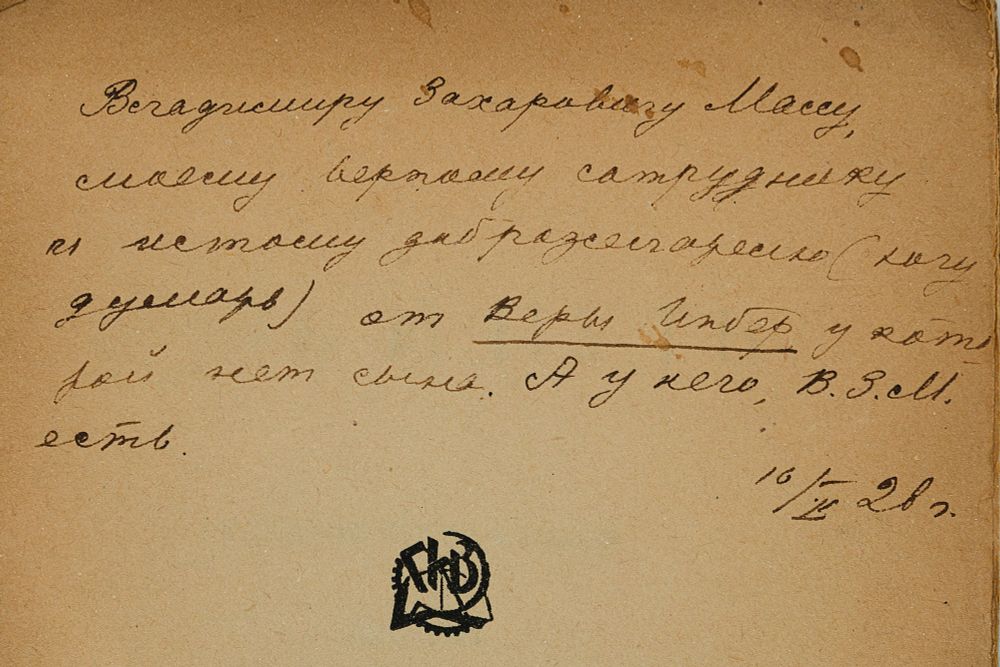 Владимиру Захаровичу Массу,
моему верному сотруднику
и истому доброжелателю (хочу
думать) от Веры Инбер, у кото-
рой нет сына. А у него, В.З.М.
есть.
16/II 28 г.